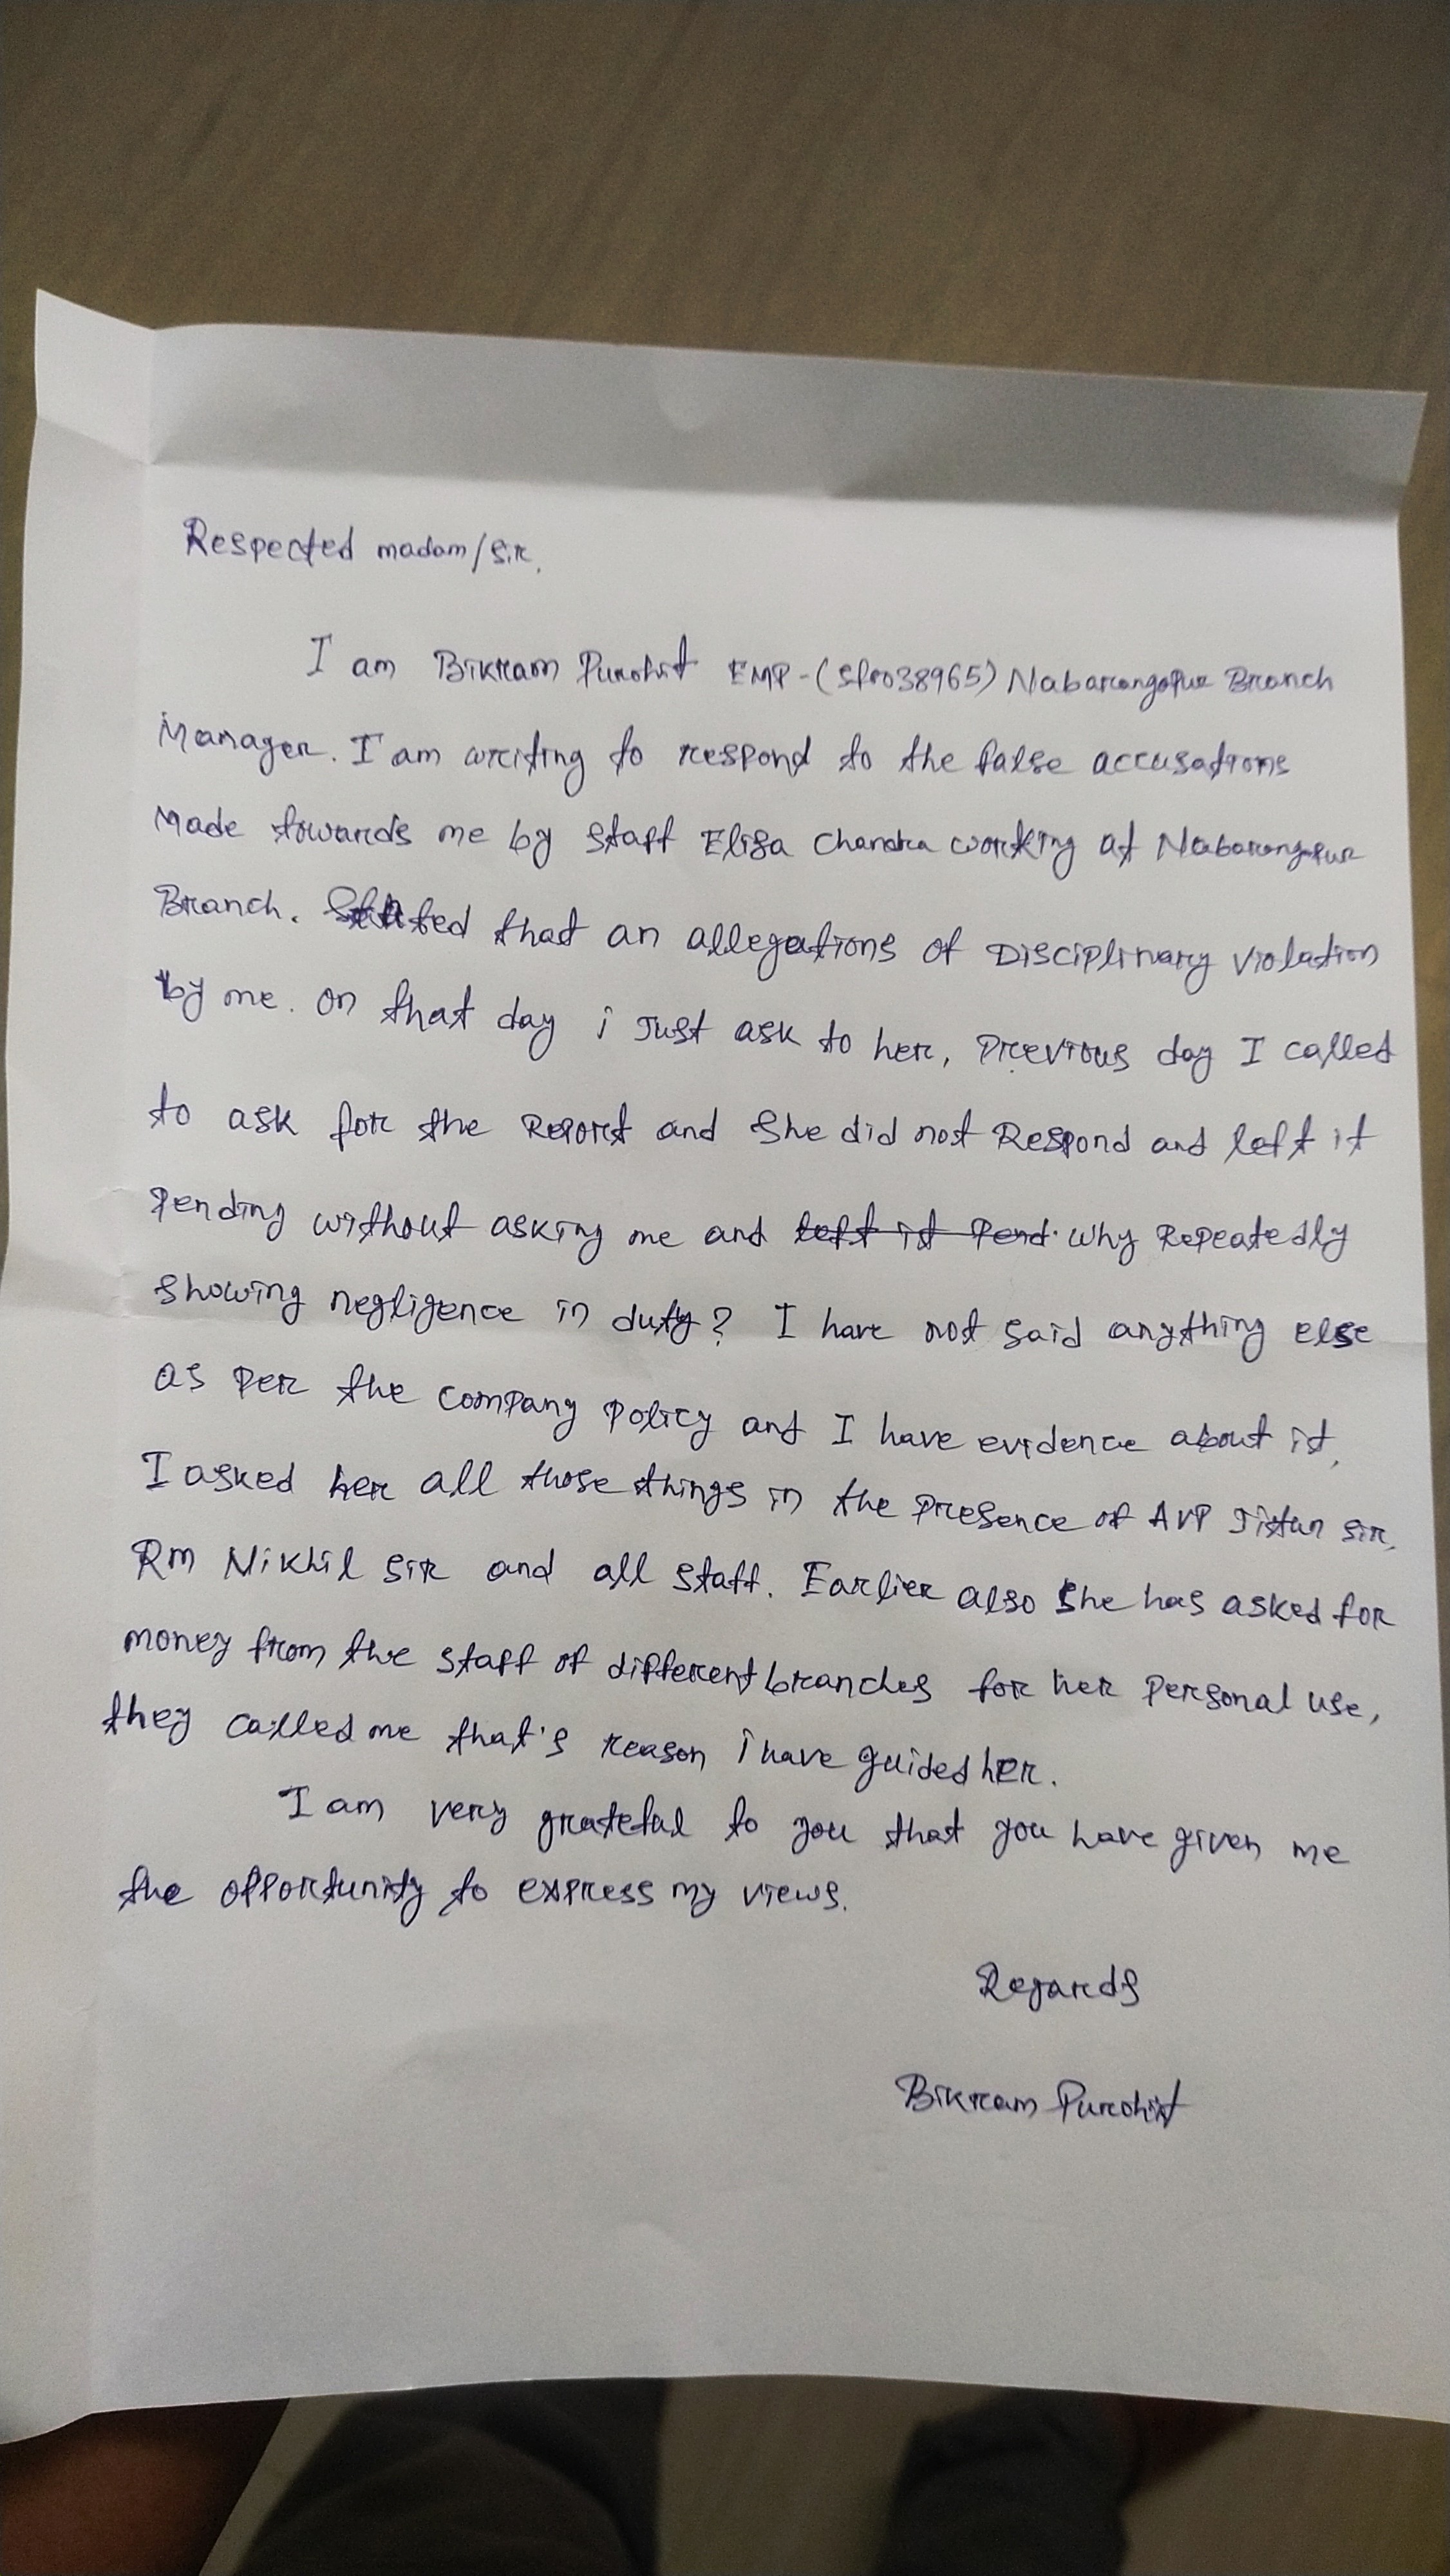 Respected madam/sir,
I am Bikram Purohit EMP-(sfr038965) Nabarangapur Branch
Manager. I am writing to respond to the false accusations
Made towards me by staff Elisa Chandra working at Nabarangapur
Branch. Stated that an allegations of Disciplinary violation
by me. on that day i Just ask to her, Previous day I called
to ask for the Report and She did not Respond and left it
Pending without asking me and left it Pend. why Repeatedly
Showing negligence in duty? I have not said anything else
as per the company policy and I have evidence about it,
I asked her all those things in the presence of AVP sir,
Rm Nikhil sir and all staff. Earlier also She has asked for
money from the staff of different branches for her Personal use,
they called me that's reason i have guided her.
I am very grateful to you that you have given me
the opportunity to express my views.
Regards
Bikram Purohit